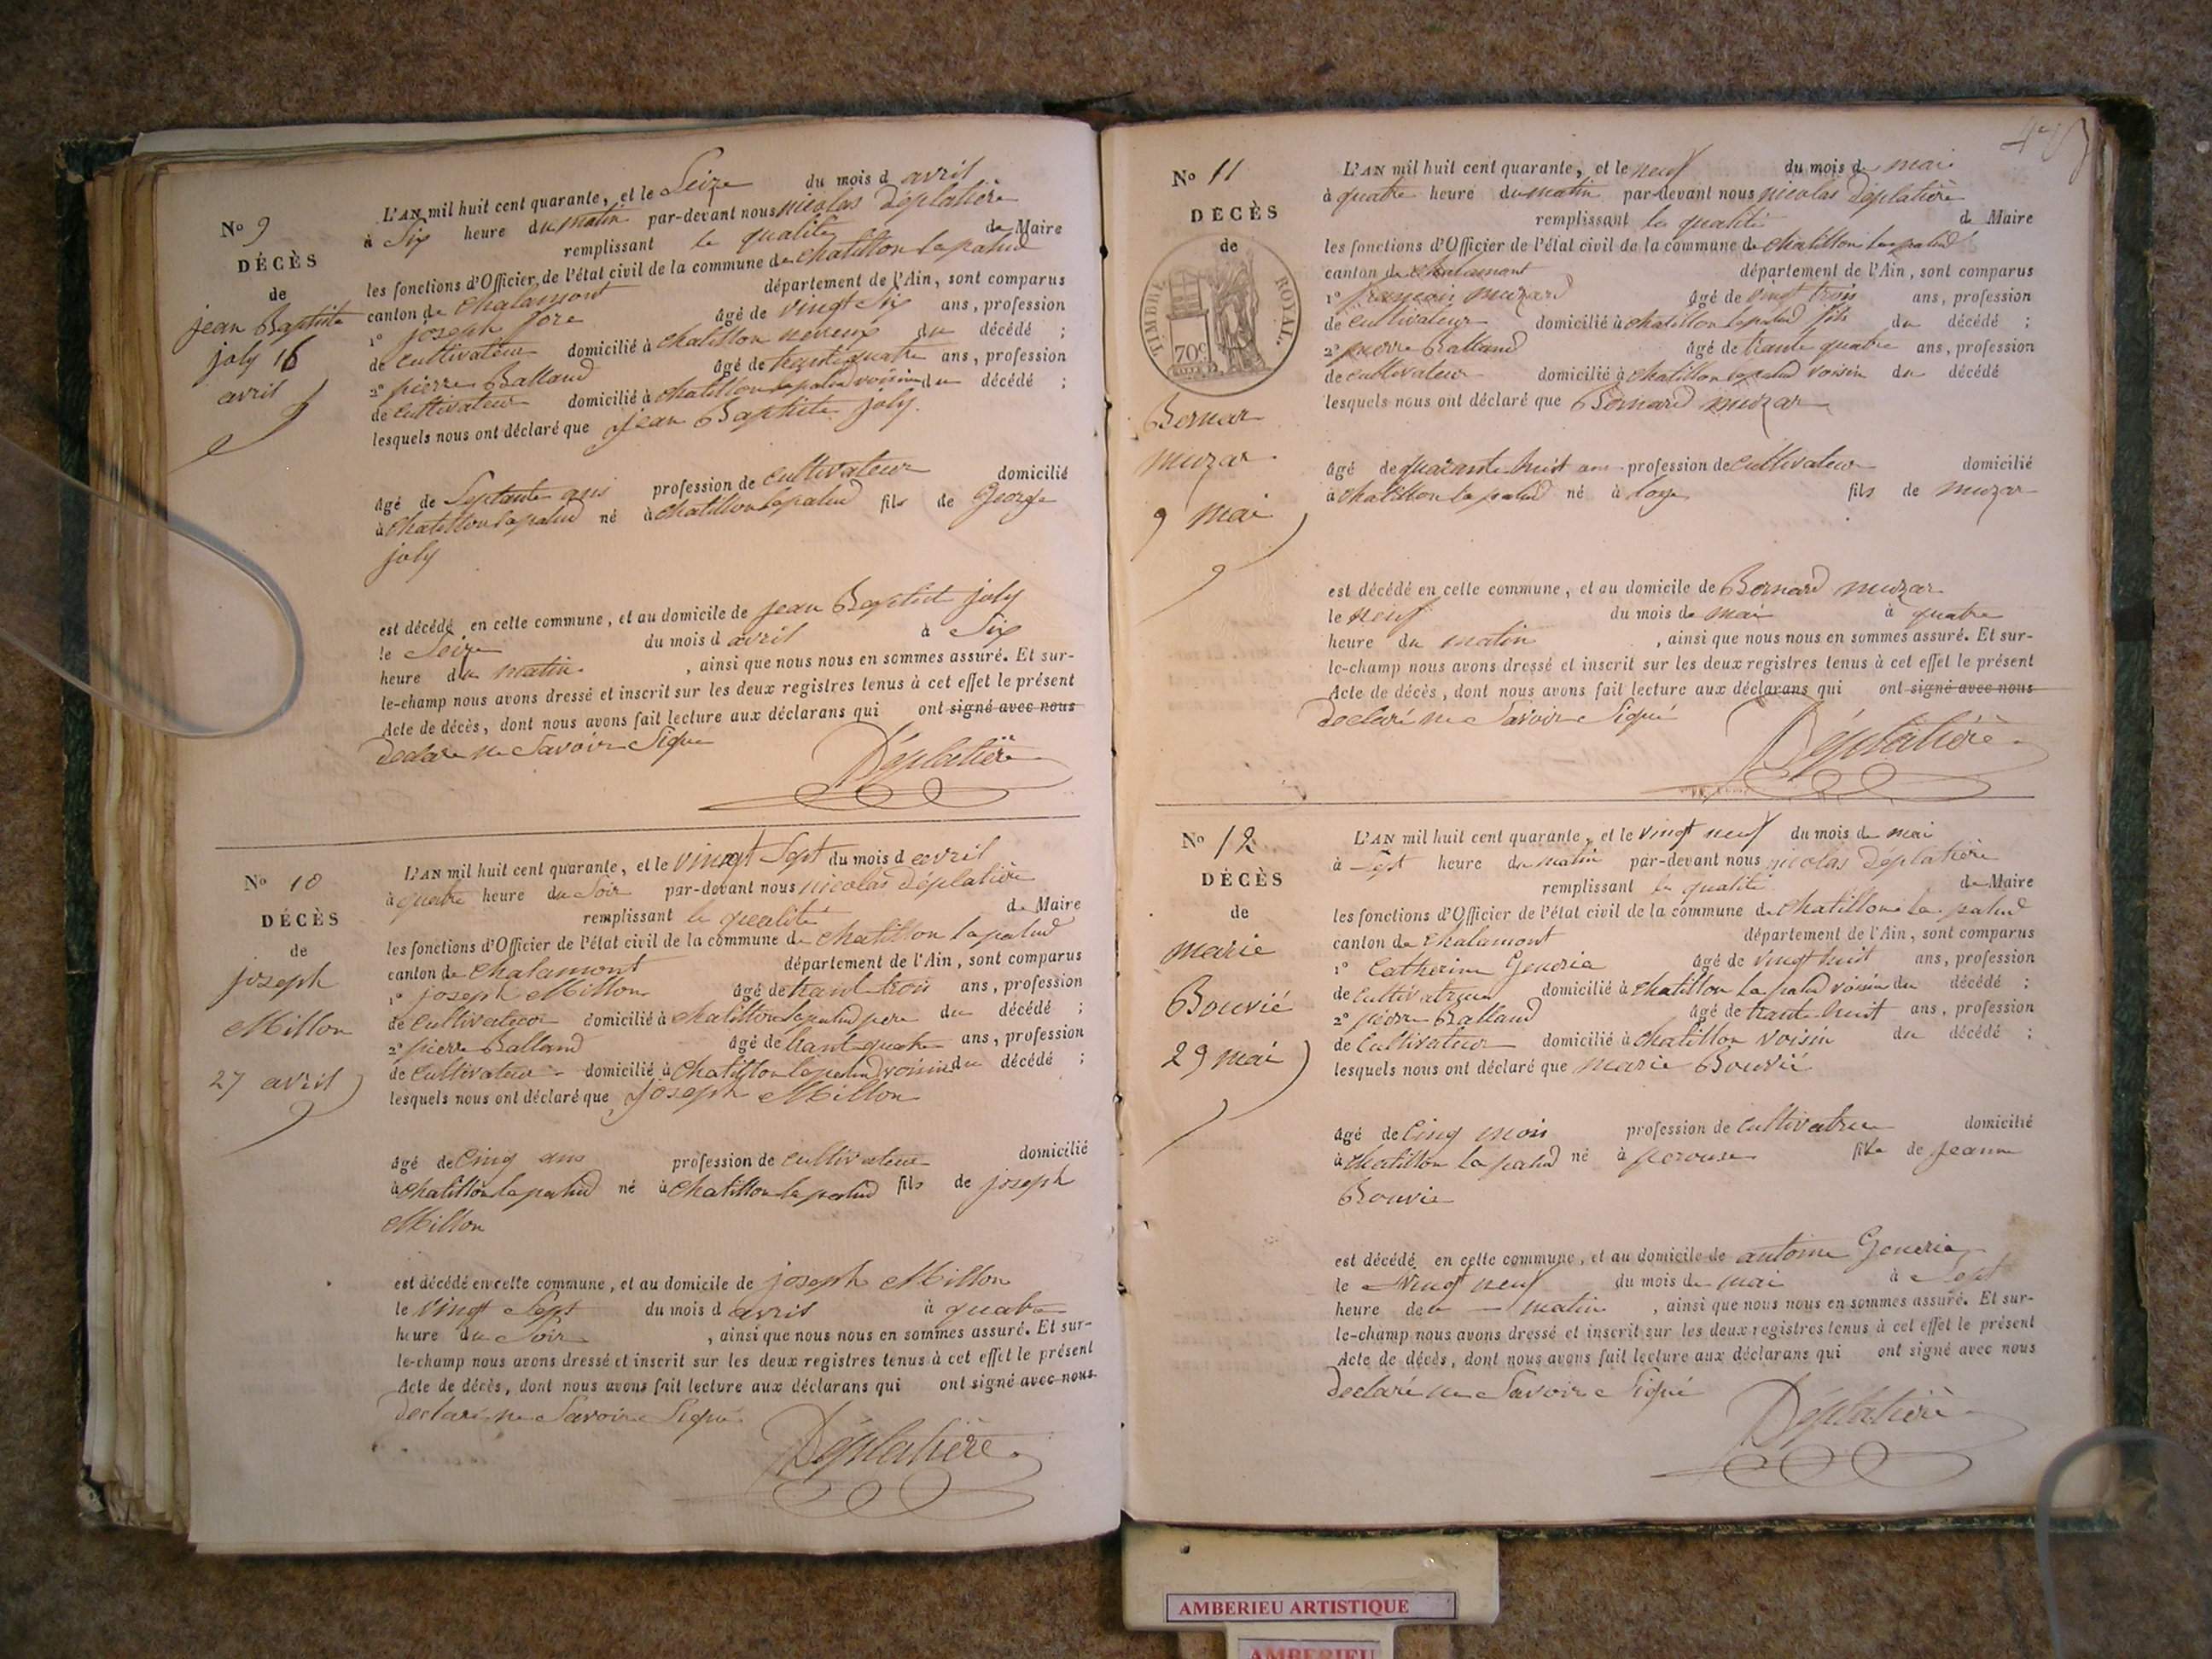 No 9
DÉCÈS
de
jean Baptiste
joly 16
avril
L'AN mil huit cent quarante, et le Seize du mois d avril
à Six heure du matin par-devant nous nicolas Déplatière
remplissant la qualité de Maire
les fonctions d'Officier de l'état civil de la commune de chatillon la palud
canton de chalamont département de l'Ain, sont comparus
1° joseph fore âgé de vingt Six ans, profession
de cultivateur domicilié à chatillon neveux du décédé ;
2° pierre Balland âgé de trante quatre ans, profession
de cultivateur domicilié à chatillon la palud voisin du décédé ;
lesquels nous ont déclaré que jean Baptiste joly.
âgé de Septante ans profession de cultivateur domicilié
à chatillon la palud né à chatillon la palud fils de George
joly
est décédé en cette commune, et au domicile de jean Baptist joly
le Seize du mois d avril à Six
heure du matin , ainsi que nous nous en sommes assuré. Et sur-
le-champ nous avons dressé et inscrit sur les deux registres tenus à cet effet le présent
Acte de décès, dont nous avons fait lecture aux déclarans qui ont signé avec nous
Declare ne Savoir Signe
Déplatière
No 10
DÉCÈS
de
joseph
Millon
27 avril
L'AN mil huit cent quarante, et le vingt Sept du mois d avril
à quatre heure du Soir par-devant nous nicolas Déplatière
remplissant la qualité de Maire
les fonctions d'Officier de l'état civil de la commune de chatillon la palud
canton de chalamont département de l'Ain, sont comparus
1° joseph Millon âgé de trant trois ans, profession
de cultivateur domicilié à chatillon la palud pere du décédé ;
2° pierre Balland âgé de trant quatre ans, profession
de cultivateur domicilié à chatillon la palud voisin du décédé ;
lesquels nous ont déclaré que joseph Millon
âgé de Cinq ans profession de cultivateur domicilié
à chatillon la palud né à chatillon la palud fils de joseph
Millon
est décédé en cette commune, et au domicile de joseph Millon
le vingt Sept du mois d avril à quatre
heure du Soir , ainsi que nous nous en sommes assuré. Et sur-
le-champ nous avons dressé et inscrit sur les deux registres tenus à cet effet le présent
Acte de décès, dont nous avons fait lecture aux déclarans qui ont signé avec nous
Declaré ne Savoir Signé
Déplatière
No 11
DÉCÈS
de
TIMBRE ROYAL
70c
Bernar
muzar
9 mai
L'AN mil huit cent quarante, et le neuf du mois de mai
à quatre heure du matin par-devant nous nicolas Déplatière
remplissant la qualité d Maire
les fonctions d'Officier de l'état civil de la commune de chatillon la palud
canton de chalamont département de l'Ain, sont comparus
1° francois muzard âgé de vingt trois ans, profession
de cultivateur domicilié à chatillon la palud fils du décédé ;
2° pierre Balland âgé de trante quatre ans, profession
de cultivateur domicilié à chatillon la palud voisin du décédé
lesquels nous ont déclaré que Bernard muzar
âgé de quarante huit ans profession de cultivateur domicilié
à chatillon la palud né à loye fils de muzar
est décédé en cette commune, et au domicile de Bernard muzar
le neuf du mois de mai à quatre
heure du matin , ainsi que nous nous en sommes assuré. Et sur-
le-champ nous avons dressé et inscrit sur les deux registres tenus à cet effet le présent
Acte de décès, dont nous avons fait lecture aux déclarans qui ont signé avec nous
Declaré ne Savoir Signé
Déplatière
No 12
DÉCÈS
de
marie
Bouvié
29 mai
L'AN mil huit cent quarante, et le vingt neuf du mois de mai
à Sept heure du matin par-devant nous nicolas Déplatière
remplissant la qualité de Maire
les fonctions d'Officier de l'état civil de la commune de chatillon la palud
canton de chalamont département de l'Ain, sont comparus
1° Catherine Genoria âgé de vingt huit ans, profession
de cultivatrice domicilié à chatillon la palud voisin du décédé ;
2° pierre Balland âgé de trante huit ans, profession
de cultivateur domicilié à chatillon voisin du décédé ;
lesquels nous ont déclaré que marie Bouvié
âgé de Cinq mois profession de cultivatrice domicilié
à chatillon la palud né à perouse fille de jeanne
Bouvie
est décédé en cette commune, et au domicile de antoine Generia
le vingt neuf du mois de mai à Sept
heure de matin , ainsi que nous nous en sommes assuré. Et sur-
le-champ nous avons dressé et inscrit sur les deux registres tenus à cet effet le présent
Acte de décès, dont nous avons fait lecture aux déclarans qui ont signé avec nous
Declaré ne Savoire Signé
Déplatière
AMBERIEU ARTISTIQUE
AMBERIEU